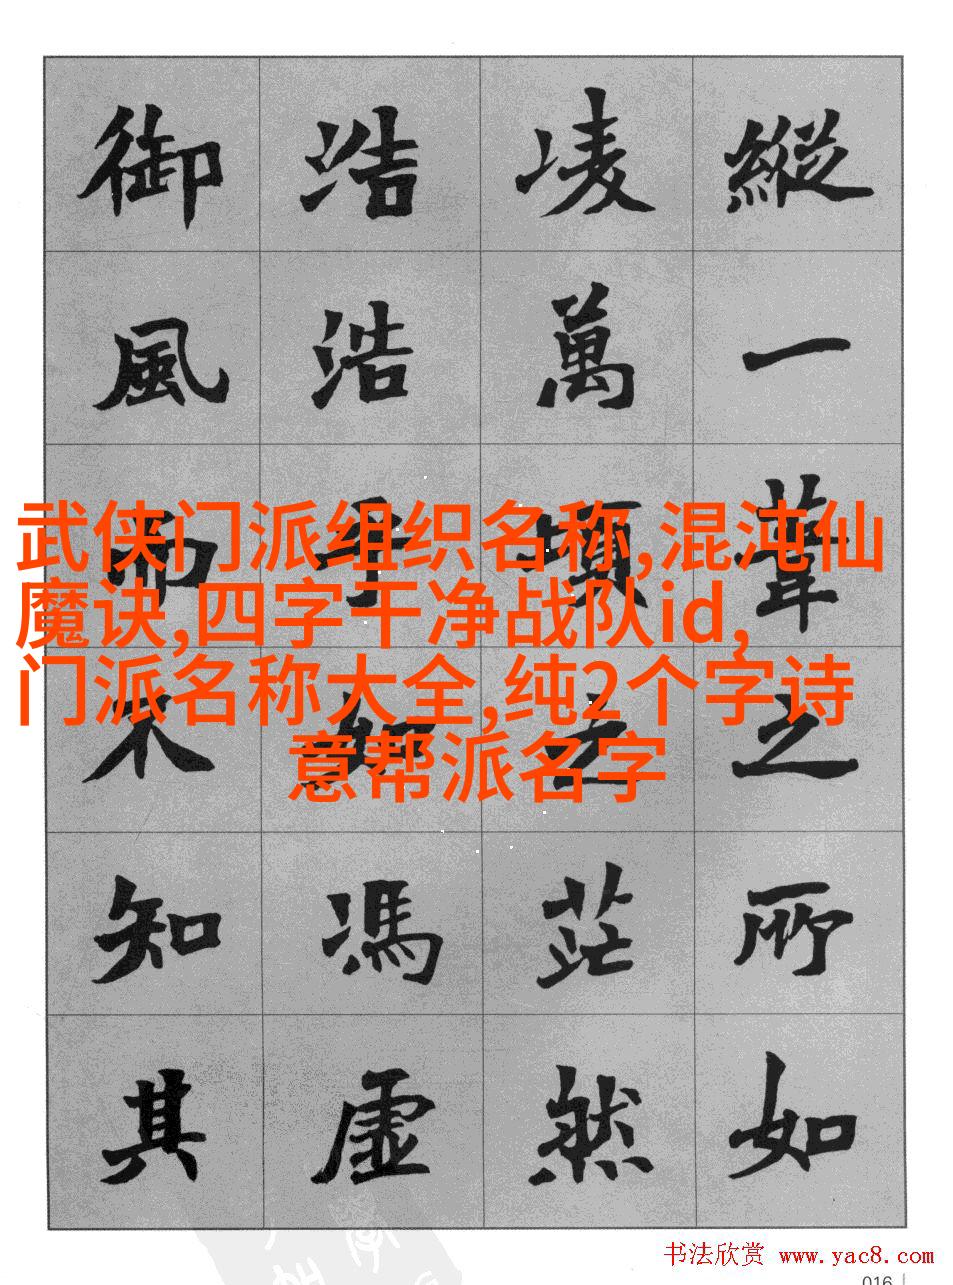 縱一葦之所如
凌萬頃之茫然
浩浩乎如馮虛
御風而不知其
武侠门派组织名称,混沌仙
魔诀,四字干净战队id,
门派名称大全,纯2个字诗
意帮派名字
书法欣赏 www.yac8.com
016